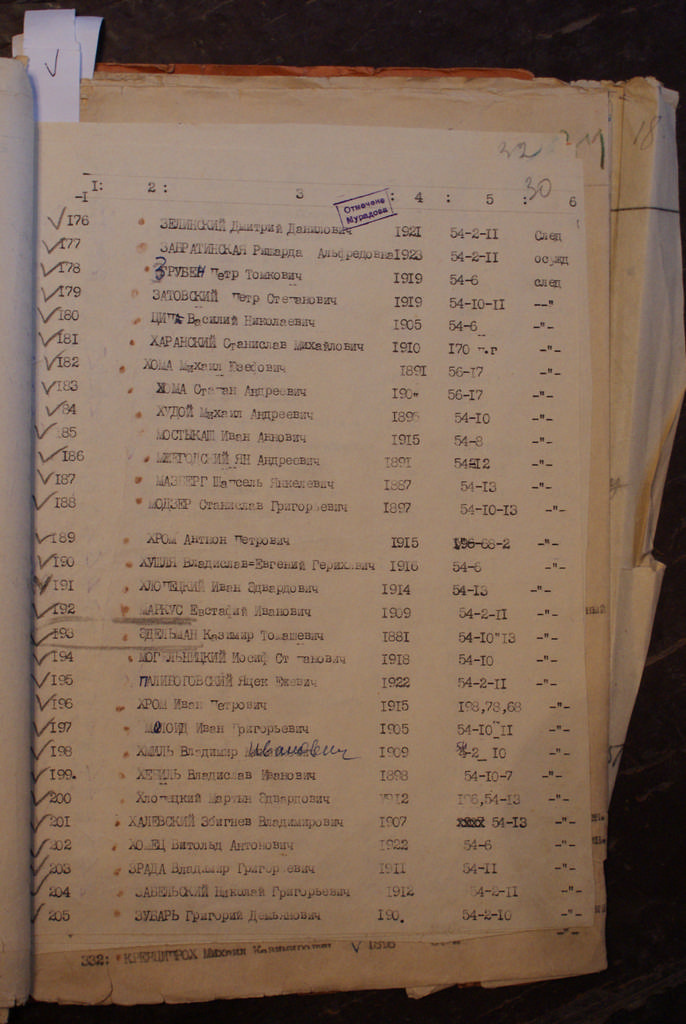 18
30
-I I: 2: 3 : 4 : 5 : 6
Отмечено
Мурадова
176 ЗЕЛИНСКИЙ Дмитрий Данилович 1921 54-2-II След
177 ЗАВРАТИНСКАЯ Ришарда Альфредовна 1923 54-2-II осужд
178 ЗРУБЕН Петр Томкович 1919 54-6 след
179 ЗАТОВСКИЙ Петр Степанович 1919 54-10-II --"
180 Василий Николаевич 1905 54-6 -"-
181 ХАРАНСКИЙ Станислав Михайлович 1910 170 -"-
182 ХОМА Михаил Юзефович 1891 56-17 -"-
183 ХОМА Степан Андреевич 56-17 -"-
184 ХУДОЙ Михаил Андреевич 54-10 -"-
185 МОСТЫКАШ Иван 1915 54-8 -"-
186 ЯН Андреевич 1891 -"-
187 МАЗБЕРГ Янкелевич 1887 54-13 -"-
188 МОДЗЕР Станислав Григорьевич 1897 54-10-13 -"-
189 ХРОМ Антион Петрович 1915 -"-
190 Владислав=Евгений 1916 54-6 -"-
191 ХЛОПЕЦКИЙ Иван Эдвардович 1914 54-13 -"-
192 МАРКУС Евстафий Иванович 1909 54-2-II -"-
193 ЭДЕЛЬМАН Казимир Томашевич 1881 54-10"13 -"-
194 МОГЕЛЬНИЦКИЙ Иосиф Степанович 1918 54-10 -"-
195 ПАЛИНОГОВСКИЙ Яцек Ежевич 1922 54-2-II -"-
196 ХРОМ Иван Петрович 1915 198,78,68 -"-
197 Иван Григорьевич 1905 54-10_II -"-
198 ХМИЛЬ Владимир Иванович 1909 -"-
199. Владислав Иванович 1898 54-10-7 -"-
200 Хлопецкий Мартын Эдвардович 1912 196,54-13 -"-
201 ХАЛЕВСКИЙ Збигнев Владимирович 1907 54-13 -"-
202 ХОМЕЦ Витольд Антонович 1922 54-6 -"-
203 ЗРАДА Владимир Григорьевич 1911 54-II -"-
204 ЗАБЕЛЬСКИЙ Николай Григорьевич 1912 54-2-II -"-
205 ЗУБАРЬ Григорий Демьянович 54-2-10 -"-
332: Михаил